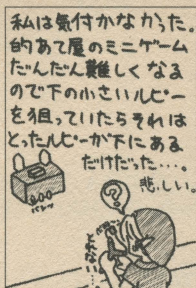 私は気付かなかった。
的あて屋のミニゲーム
だんだん難しくなる
ので下の小さいルピー
を狙っていたらそれは
とったルピーが下にある
だけだった…。
悲しい。
?
とれない